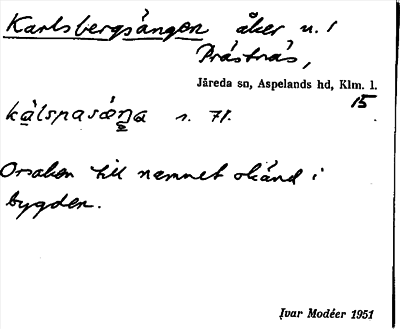 Karlsbergsängen åker u. 1
Prästnäs,
Järeda sn, Aspelands hd, Klm. l.
15
s. 71.
Orsaken till namnet okänd i
bygden.
Ivar Modéer 1951